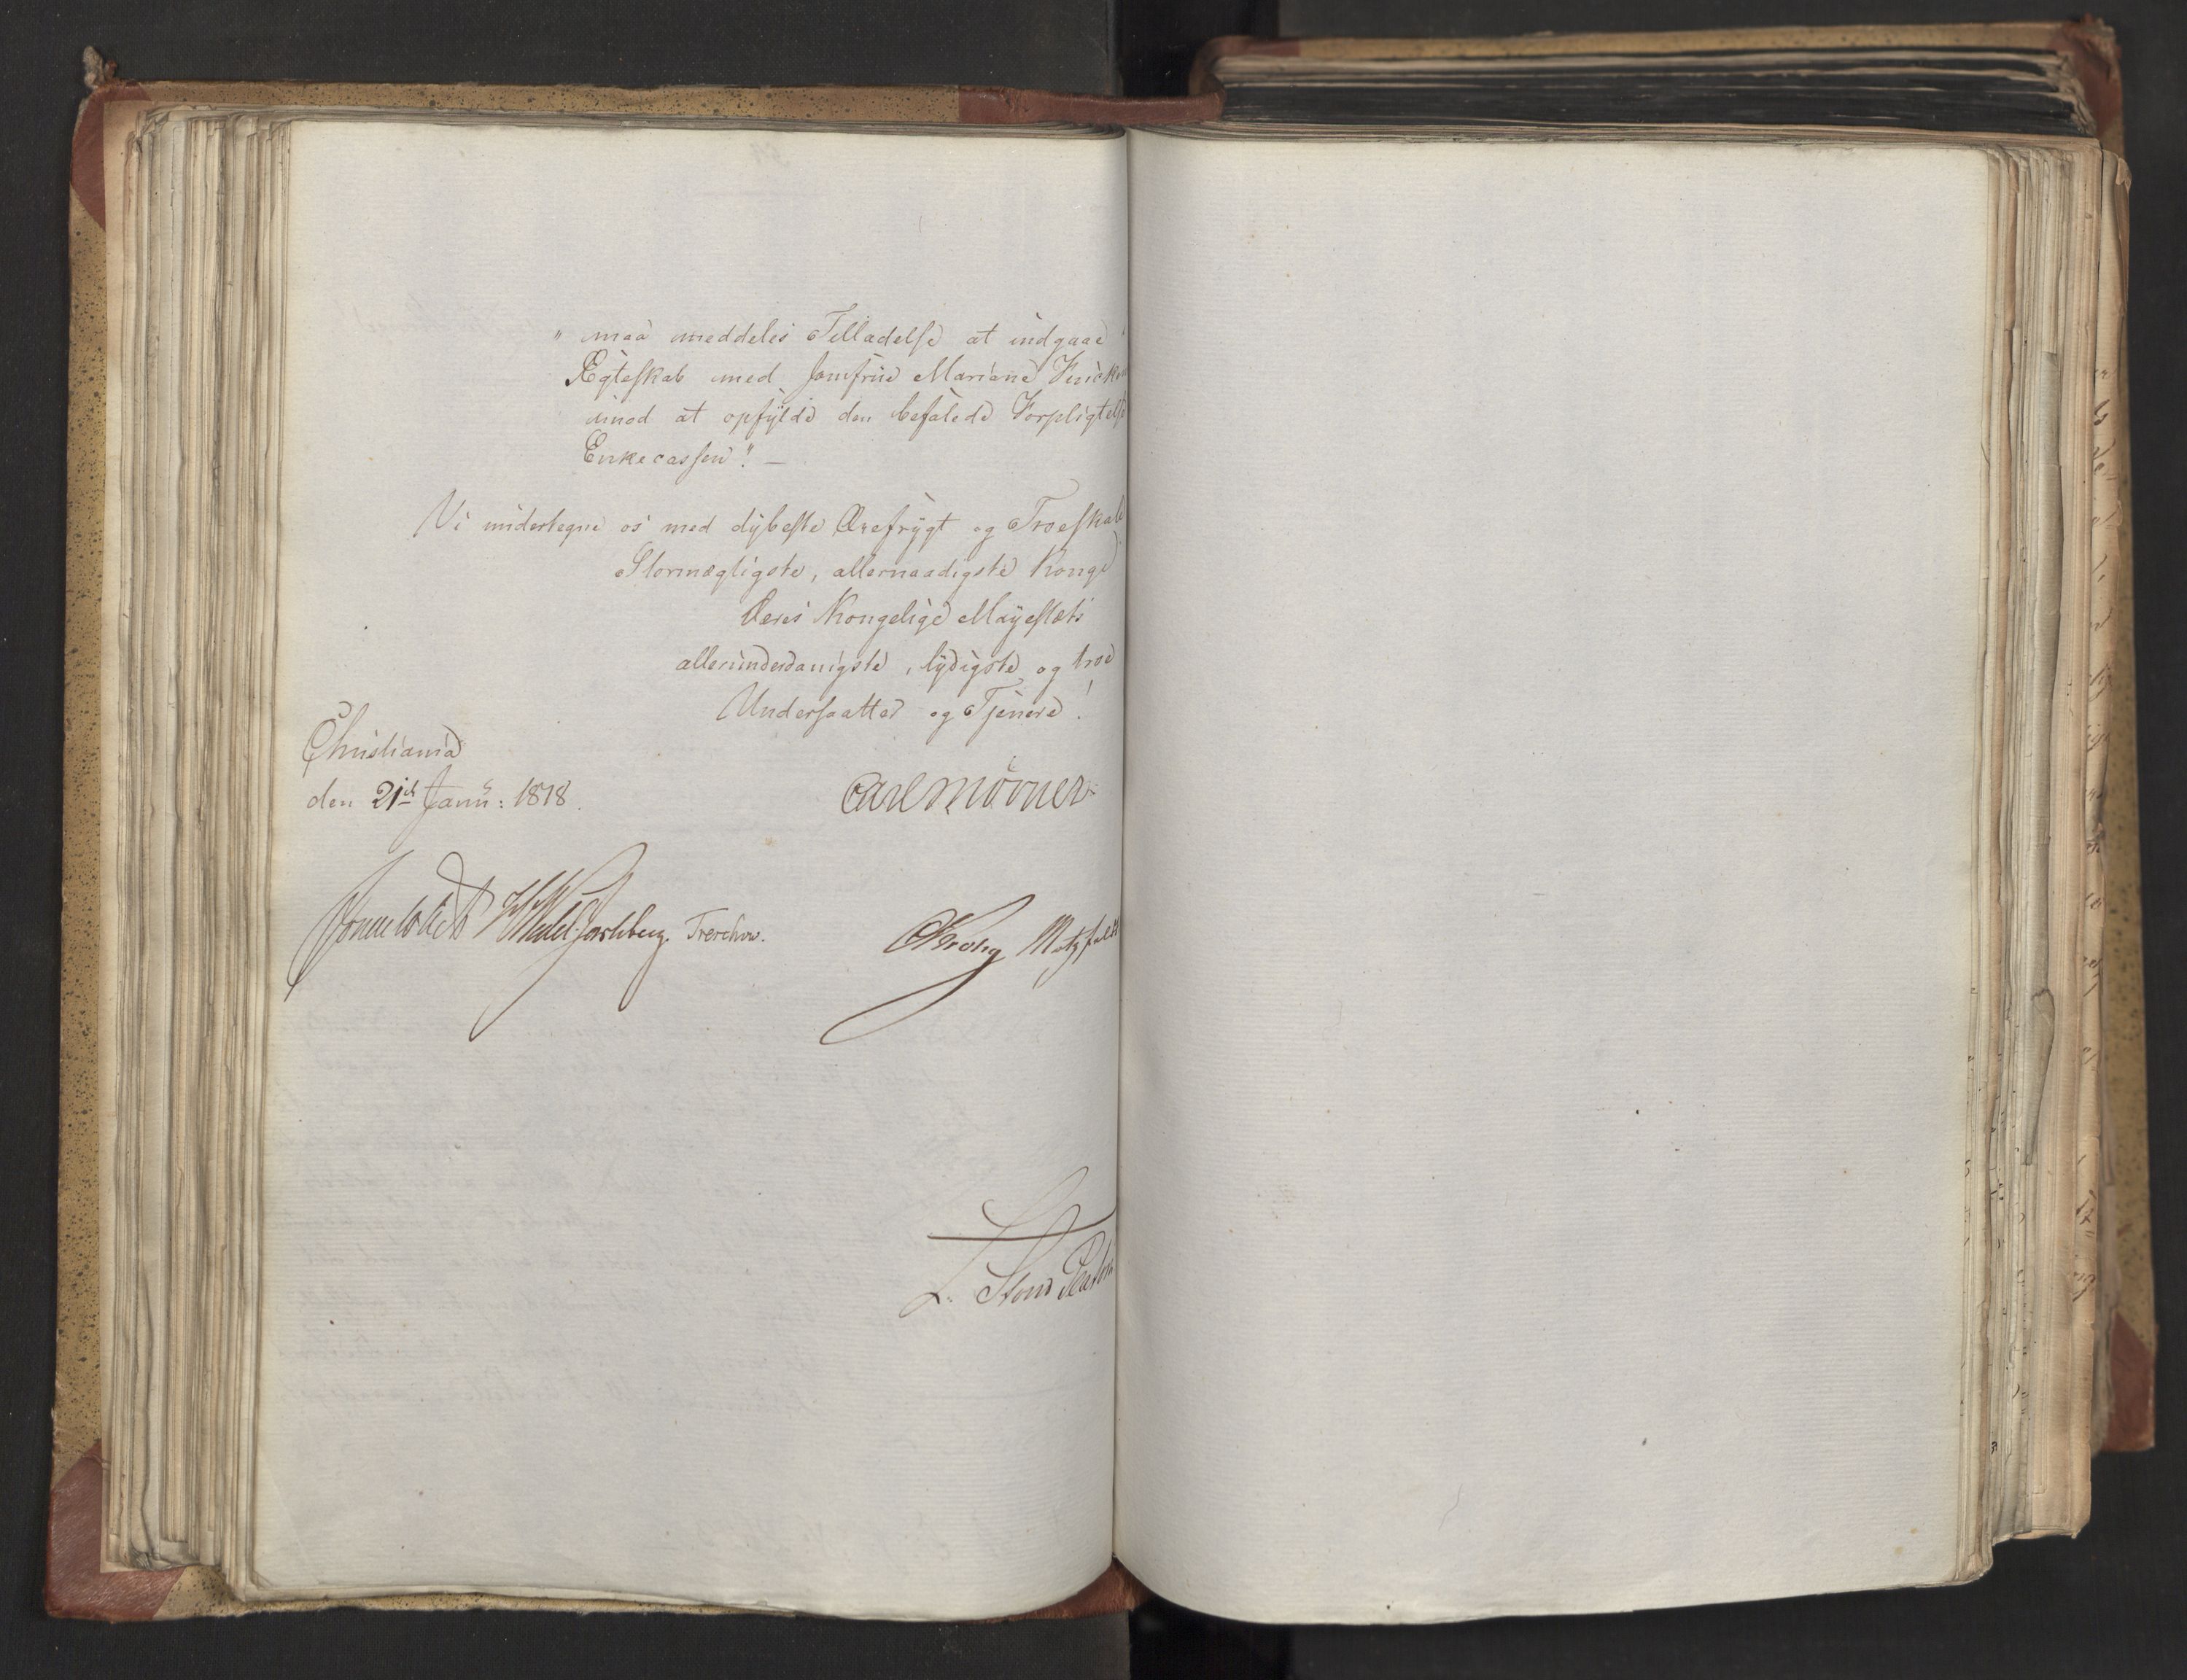 " maa meddeles Tilladelse at indgaae
Ægteskab med Jomfrue Mariane
imod at opfylde den befalede Forpligtelse
Enkecassen". —
Vi undertegne os med dybeste Ærefrygt og Troeskab
Stormægtigste, allernaadigste Konge
Deres Kongelige Mayestæts
allerunderdanigste, lydigste og troe
Undersaatter og Tjenere!
Christiania
den 21de Janu: 1818.
Carl Mörner
Sommerfeldt HWedel Jarlsberg. Treschow.
CKrohg Motzfeldt
L. Stoud Platou